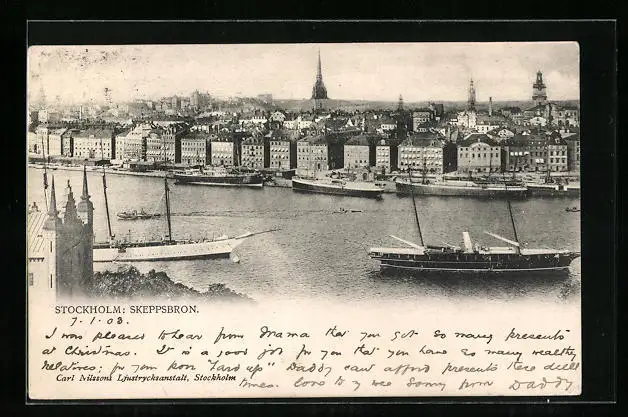 STOCKHOLM: SKEPPSBRON.
7.1.03.
I was pleased to hear from Mama that you got so many presents
at Christmas. It is a good job for you that you have so many wealthy
relatives; for you know "hard up" Daddy can't afford presents these
Carl Nilssons Ljustrycksanstalt, Stockholm
times. love to from Daddy